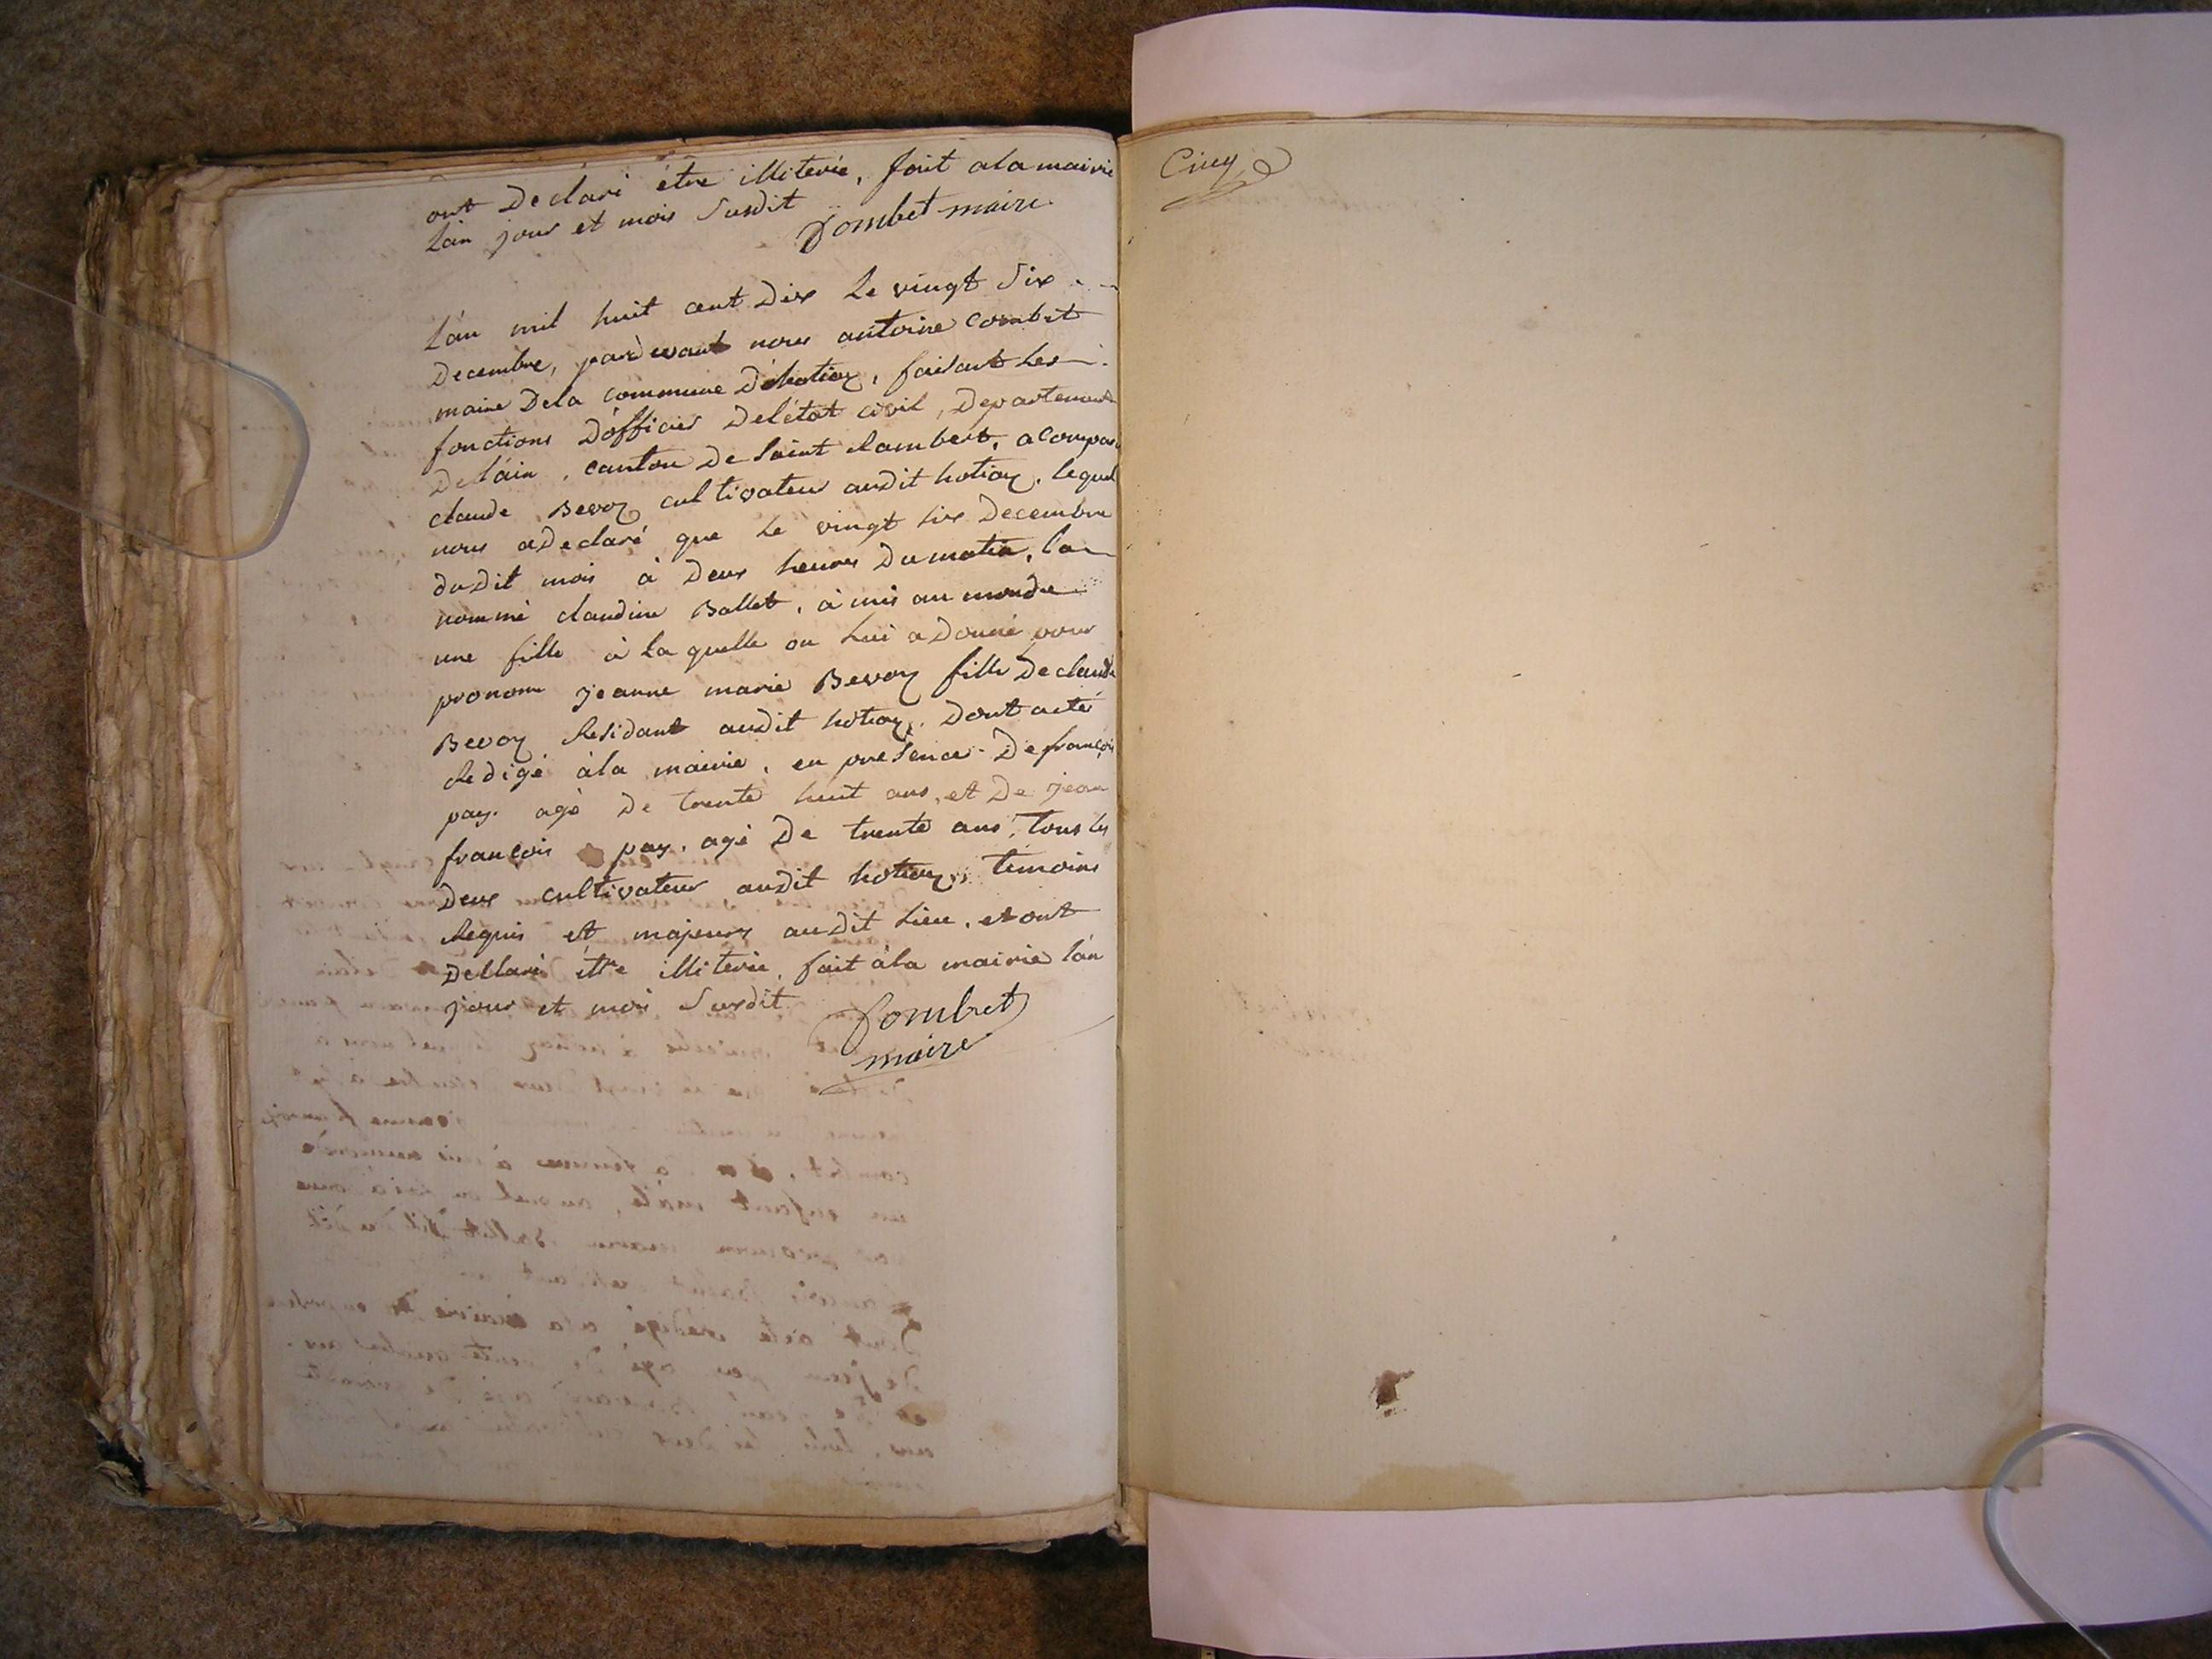 ont Declaré étre illiterée, fait ala mairie
Lan jour et mois Susdit
Combet maire
L'an mil huit cent Dix Le vingt Six
Decembre, pardevant nous antoine Combet
maire Dela commune D'hotiaz, faisant Les
fonctions D'officier Deletat civil, Departement
De l'ain, canton De Saint Rambert, a Comparu
claude Bevoz cultivateur audit hotiaz, lequel
nous a Declaré que Le vingt Six Decembre
dudit mois à Deux heures Du matin, la
nommé claudine Ballet, à mis au monde
une fille à La quelle on Lui a Donné pour
pronom jeanne marie Bevoz fille De claude
Bevoz Residant audit hotiaz, Dont acte
Redigé àla mairie, en presence De françois
pay. agé De trente huit ans, et De jean
françois pay, agé De trente ans, Tous les
Deux cultivateur audit hotiaz, temoins
Requis et majeurs audit Lieu, et ont
Dellaré être illiterée, fait àla mairie l'an
jour et mois Susdit.
Combet
maire